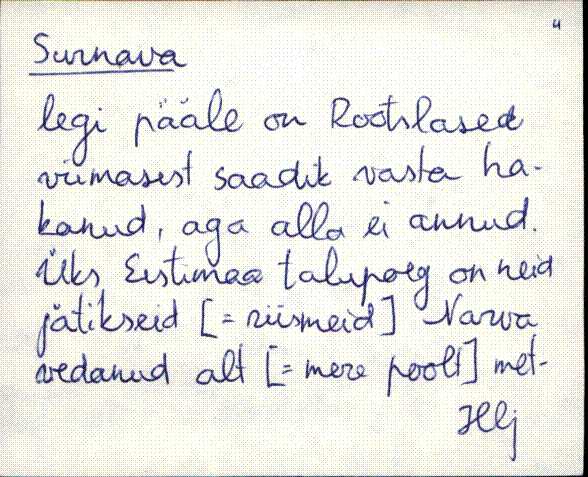 4
Surnava
legi pääle on Rootslased
viimasest saadik vasta ha-
kanud, aga alla ei annud.
Üks Eestimaa talupoeg on neid
jätikseid [= riismeid] Narva
vedanud alt [= mere poolt] met-
Hlj